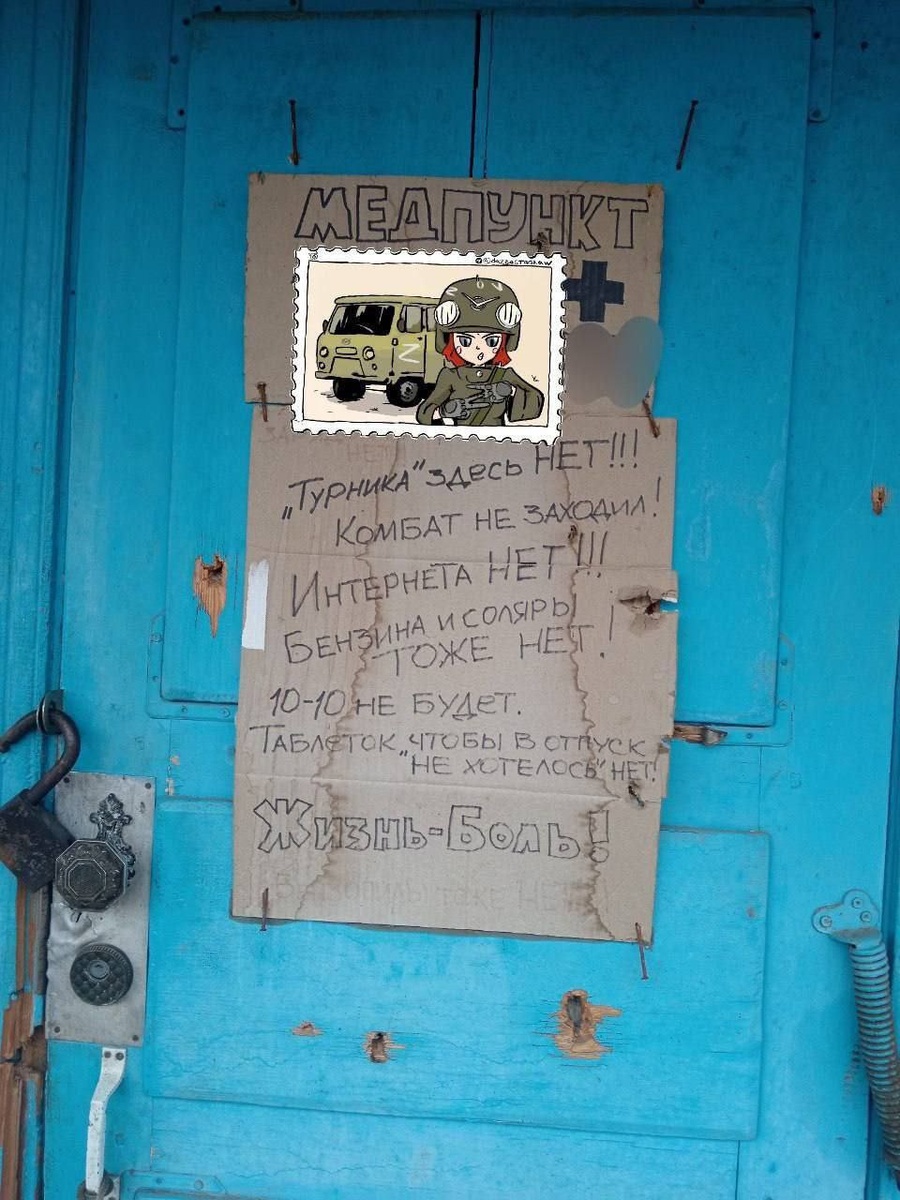 МЕДПУНКТ
Z
„Турника" здесь НЕТ!!!
Комбат не заходил!
Интернета НЕТ!!!
Бензина и солярЫ
ТОЖЕ НЕТ!
10-10 НЕ БУДЕТ.
Таблеток „чтобы в отпуск
не хотелось" нет!
Жизнь-Боль!
Бензопилы тоже НЕТ